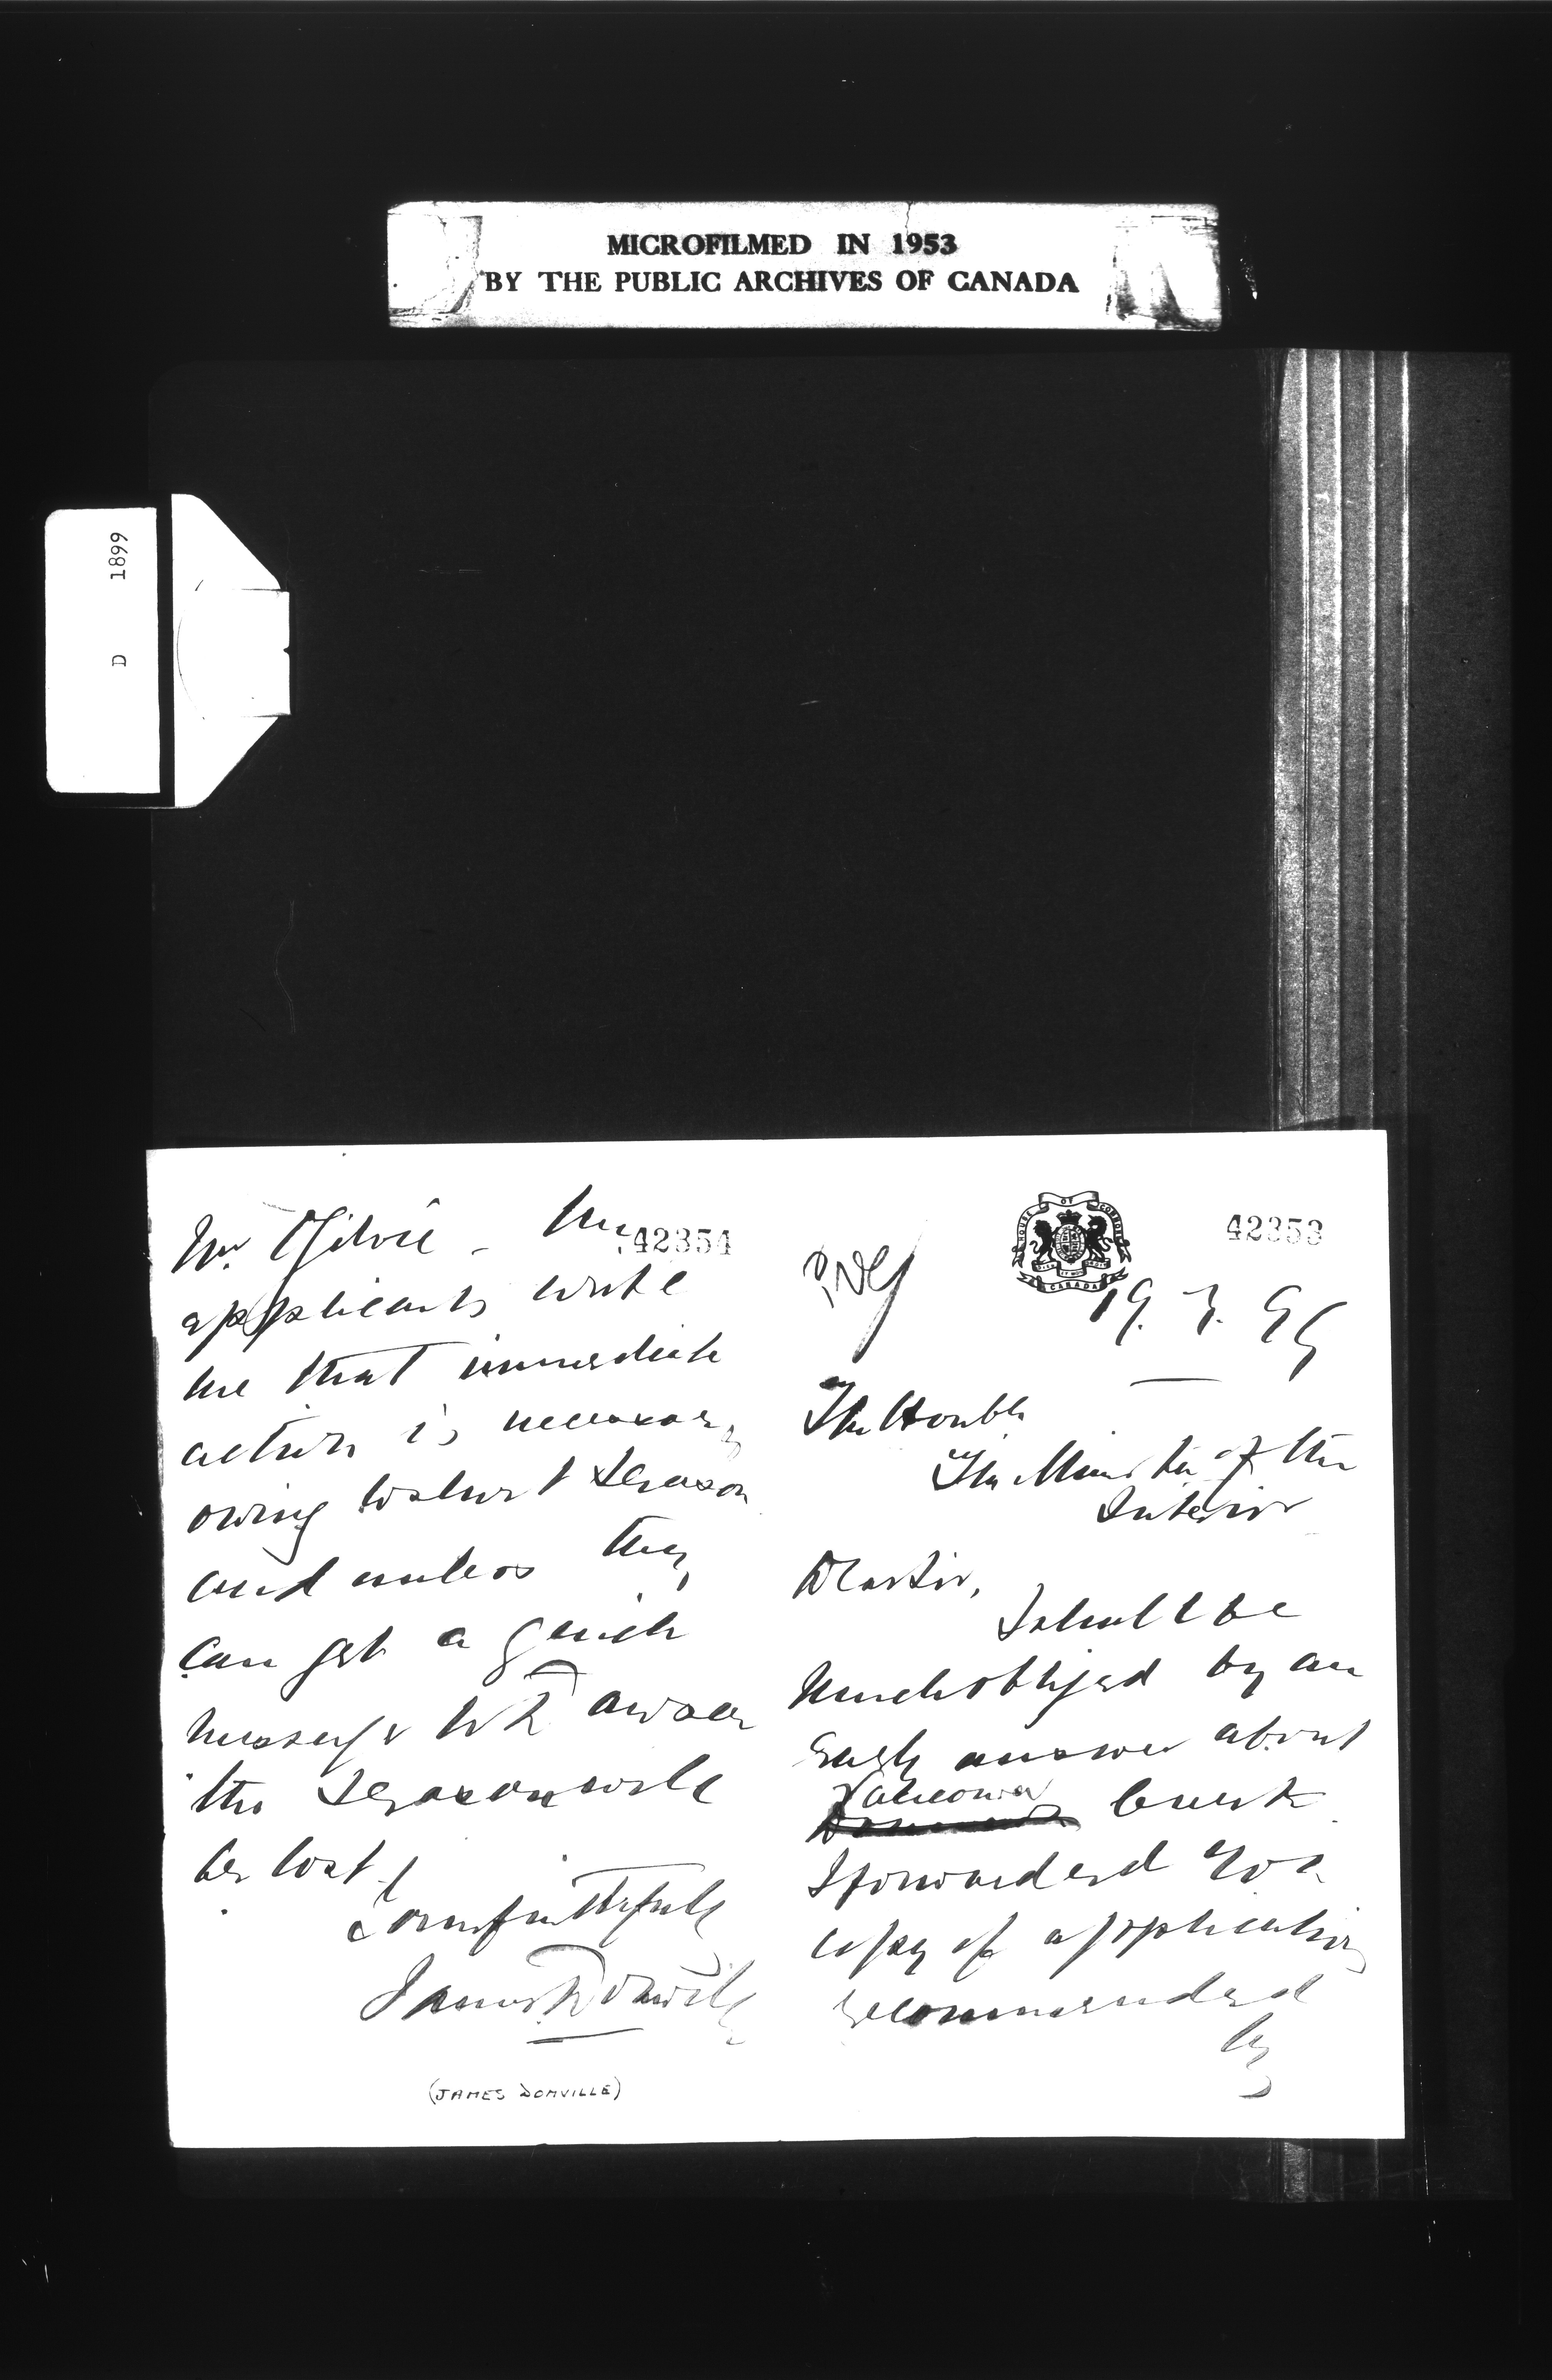 MICROFILMED IN 1953
BY THE PUBLIC ARCHIVES OF CANADA
D 1899
42353
HOUSE OF COMMONS
CANADA
19. 3. 99
The Honble
The Minister of the
Interior
Dear Sir,
I shall be
much obliged by an
early answer about
Creek
I forwarded you
copy of application
recommended
by
42354
Mr. Ogilvie - The
applicants write
me that immediate
action is necessary
owing to short season
and unless they
can get a quick
message to answer
the season will
be lost
Yours faithfully
James Domville
(JAMES DOMVILLE)